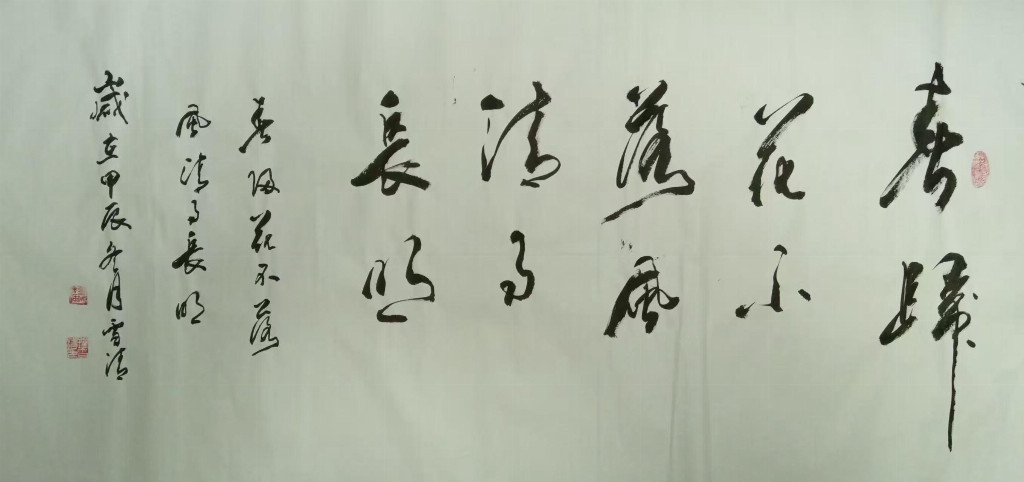 春歸
花不
落風
清月
長明
春歸花不落
風清月長明
歲在甲辰冬月雪清